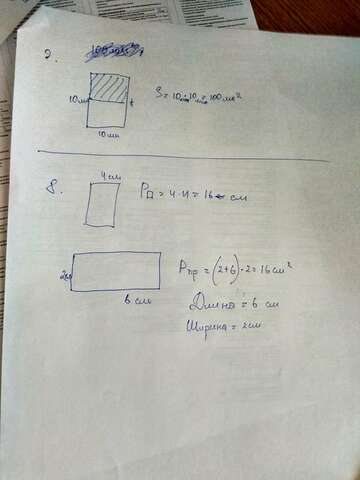 2.
10 мм
10 мм
S = 10 мм · 10 мм = 100 мм²
8.
4 см
P□ = 4 · 4 = 16 см
2 см
6 см
Pпр = (2+6) · 2 = 16 см²
Длина = 6 см
Ширина = 2 см